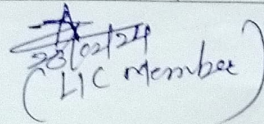 23/02/24
(LIC Member)